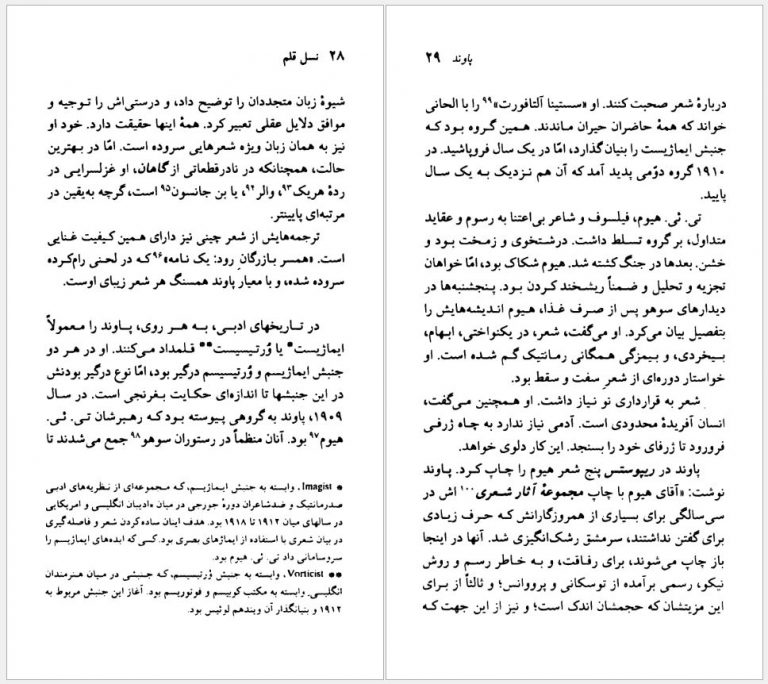 ۲۸ نسل قلم
شیوهٔ زبان متجددان را توضیح داد، و درستی‌اش را توجیه و
موافق دلایل عقلی تعبیر کرد. همهٔ اینها حقیقت دارد. خود او
نیز به همان زبان ویژه شعرهایی سروده است. امّا در بهترین
حالت، همچنانکه در نادرقطعاتی از گاهان، او غزلسرایی در
ردهٔ هریک۹۳، والر۹۴، یا بن جانسون۹۵ است، گرچه به‌یقین در
مرتبه‌ای پایینتر.
ترجمه‌هایش از شعر چینی نیز دارای همین کیفیت غنایی
است. «همسر بازرگانِ رود: یک نامه»۹۶ که در لحنی رام‌کرده
سروده شده، و با معیار پاوند همسنگ هر شعر زیبای اوست.
در تاریخهای ادبی، به هر روی، پاوند را معمولاً
ایماژیست* یا وُرتیسیست** قلمداد می‌کنند. او در هر دو
جنبش ایماژیسم و وُرتیسیسم درگیر بود، امّا نوع درگیر بودنش
در این جنبشها تا اندازه‌ای حکایت بغرنجی است. در سال
۱۹۰۹، پاوند به گروهی پیوسته بود که رهبرشان تی. ئی.
هیوم۹۷ بود. آنان منظماً در رستوران سوهو۹۸ جمع می‌شدند تا
* Imagist، وابسته به جنبش ایماژیسم، که مجموعه‌ای از نظریه‌های ادبی
ضدرمانتیک و ضدشاعران دورهٔ جورجی در میان «ادیبان انگلیسی و امریکایی
در سالهای میان ۱۹۱۲ تا ۱۹۱۸ بود. هدف اینان ساده کردن شعر و فاصله‌گیری
در بیان شعری با استفاده از ایماژهای بصری بود. کسی که ایده‌های ایماژیسم را
سروسامانی داد تی. ئی. هیوم بود.
** Vorticist، وابسته به جنبش وُرتیسیسم، که جنبشی در میان هنرمندان
انگلیسی وابسته به مکتب کوبیسم و فوتوریسم بود. آغاز این جنبش مربوط به
۱۹۱۲ و بنیانگذار آن ویندهم لوئیس بود.
پاوند ۲۹
دربارهٔ شعر صحبت کنند. او «سستینا آلتافورت»۹۹ را با الحانی
خواند که همهٔ حاضران حیران ماندند. همین گروه بود که
جنبش ایماژیست را بنیان‌گذارد، امّا در یک سال فروپاشید. در
۱۹۱۰ گروه دوّمی پدید آمد که آن هم نزدیک به یک سال
پایید.
تی. ئی. هیوم، فیلسوف و شاعر بی‌اعتنا به رسوم و عقاید
متداول، بر گروه تسلط داشت. درشتخوی و زمخت بود و
خشن. بعدها در جنگ کشته شد. هیوم شکاک بود، امّا خواهان
تجزیه و تحلیل و ضمناً ریشخند کردن بود. پنجشنبه‌ها در
دیدارهای سوهو پس از صرف غذا، هیوم اندیشه‌هایش را
بتفصیل بیان می‌کرد. او می‌گفت، شعر، در یکنواختی، ابهام،
بیخردی، و بیمزگی همگانی رمانتیک گم شده است. او
خواستار دوره‌ای از شعرِ سفت و سقط بود.
شعر به قراردادی نو نیاز داشت. او همچنین می‌گفت،
انسان آفریدهٔ محدودی است. آدمی نیاز ندارد به چاه ژرفی
فرورود تا ژرفای خود را بسنجد. این کار دلوی خواهد.
پاوند در ریپوستس پنج شعر هیوم را چاپ کرد. پاوند
نوشت: «آقای هیوم با چاپ مجموعهٔ آثار شعری۱۰۰ اش در
سی‌سالگی برای بسیاری از همروزگارانش که حرف زیادی
برای گفتن نداشتند، سرمشق رشک‌انگیزی شد. آنها در اینجا
باز چاپ می‌شوند، برای رفاقت، و به خاطر رسم و روش
نیکو، رسمی برآمده از توسکانی و پرووانس؛ و ثالثاً از برای
این مزیتشان که حجمشان اندک است؛ و نیز از این جهت که